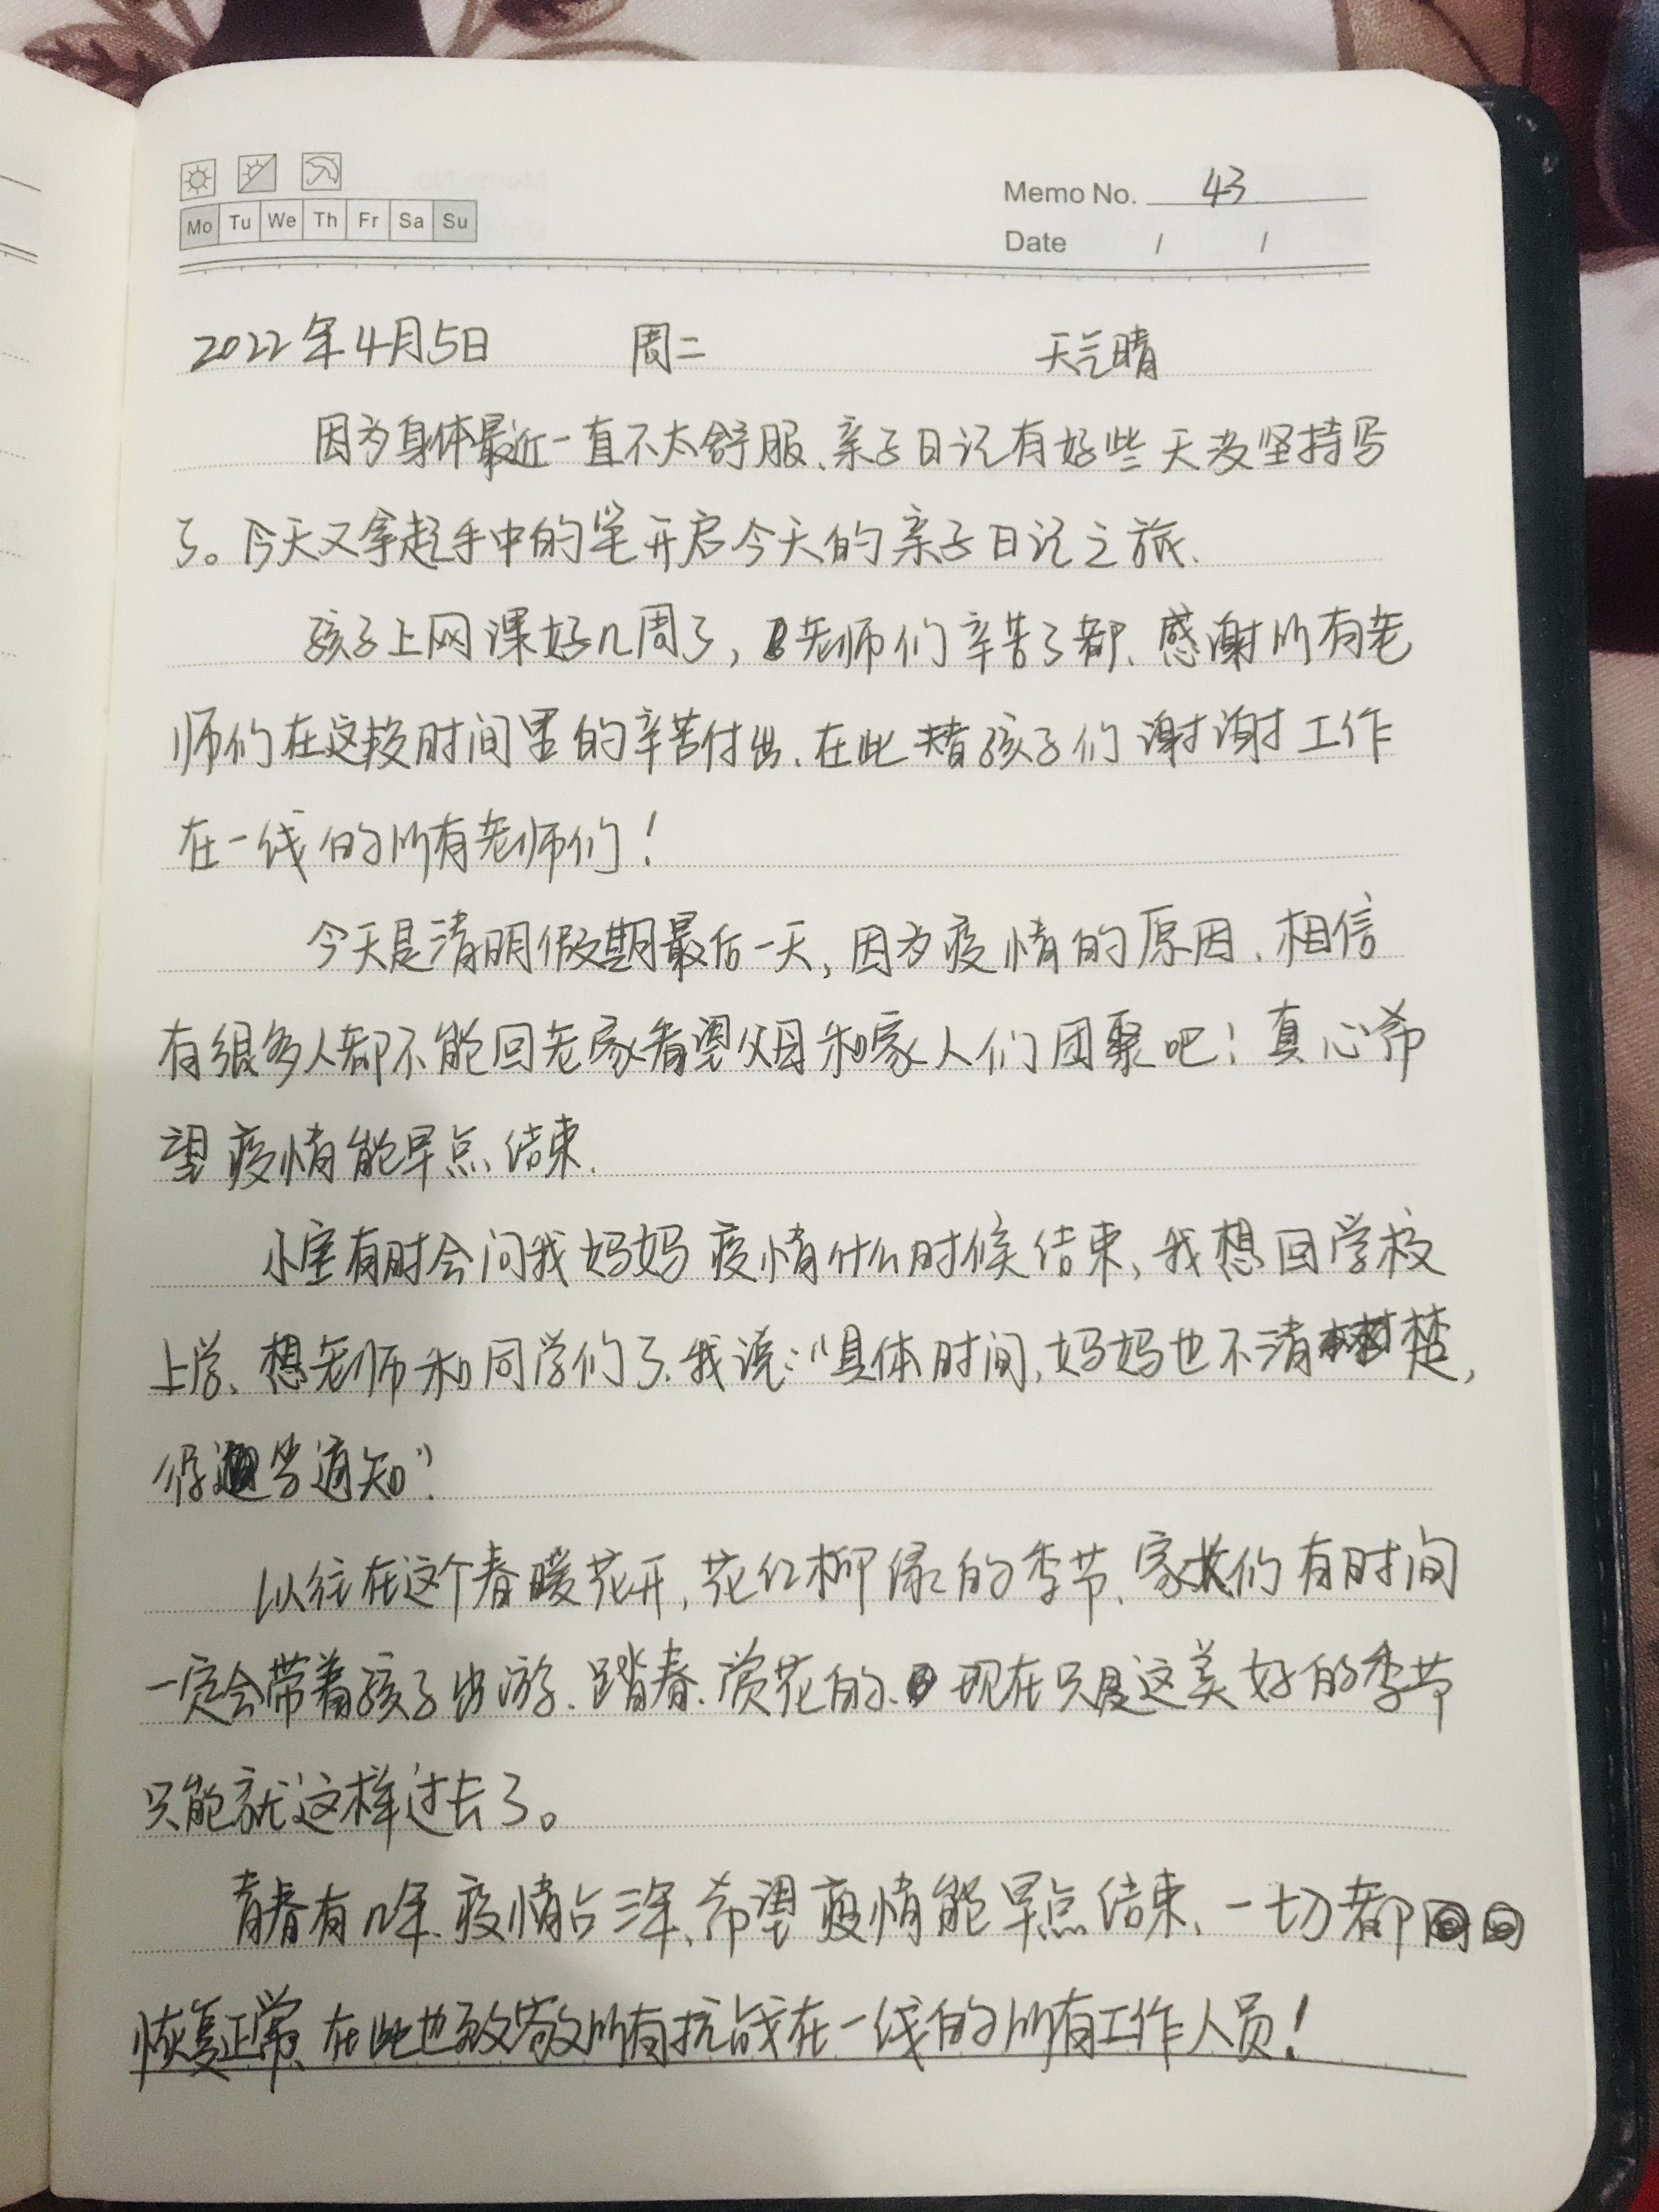 Mo Tu We Th Fr Sa Su
Memo No. 43
Date / /
2022年4月5日 周二 天气晴
因为身体最近一直不太舒服、亲子日记有好些天没坚持写
了。今天又拿起手中的笔开启今天的亲子日记之旅.
孩子上网课好几周了,老师们辛苦了都、感谢所有老
师们在这段时间里的辛苦付出、在此替孩子们谢谢工作
在一线的所有老师们!
今天是清明假期最后一天,因为疫情的原因、相信
有很多人都不能回老家看望父母和家人们团聚吧!真心希
望疫情能早点结束.
小宝有时会问我妈妈疫情什么时候结束,我想回学校
上学、想老师和同学们了.我说:“具体时间,妈妈也不清楚,
得等通知”.
以往在这个春暖花开,花红柳绿的季节、家人们有时间
一定会带着孩子出游、踏春、赏花的、现在只是这美好的季节
只能就这样过去了。
青春有几年、疫情占三年、希望疫情能早点结束、一切都回
恢复正常、在此也致敬所有抗战在一线的所有工作人员!